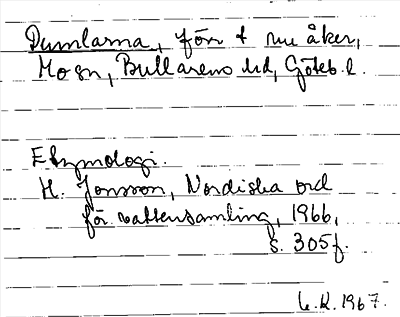 Dumlarna, förr t nu åker,
Mo sn, Bullarens hd, Göteb. l.
Etymologi.
H. Jonsson, Nordiska ord
för vattensamling, 1966,
s. 305 f.
1967.